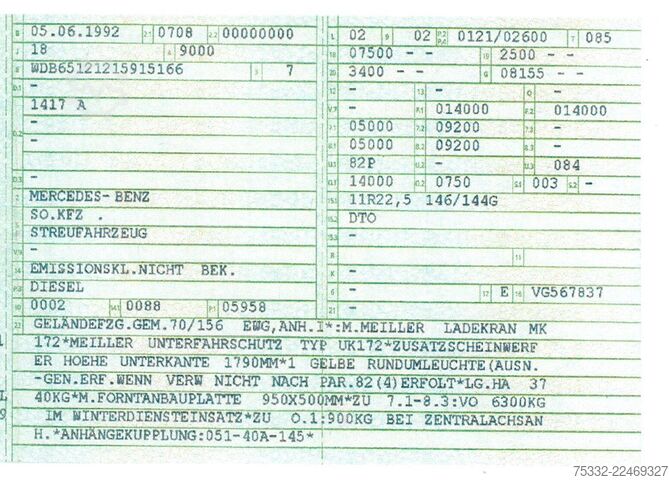 B 05.06.1992 2.1 0708 2.2 00000000
J 18 4 9000
E WDB65121215915166 3 7
D.1 -
1417 A
D.2 -
-
-
D.3 -
2 MERCEDES-BENZ
5 SO.KFZ .
STREUFAHRZEUG
V.9 -
14 EMISSIONSKL.NICHT BEK.
P.3 DIESEL
10 0002 14.1 0088 P.1 05958
L 02 9 02 P.2 P.4 0121/02600 T 085
18 07500 - - 19 2500 - -
20 3400 - - G 08155 - -
12 - 13 - Q -
V.7 - F.1 014000 F.2 014000
7.1 05000 7.2 09200 7.3 -
8.1 05000 8.2 09200 8.3 -
U.1 82P U.2 - U.3 084
O.1 14000 O.2 0750 S.1 003 S.2 -
15.1 11R22,5 146/144G
15.2 DTO
15.3 -
R 11
K -
6 - 17 E 16 VG567837
21 -
22 GELÄNDEFZG.GEM.70/156 EWG,ANH.I*:M.MEILLER LADEKRAN MK
172*MEILLER UNTERFAHRSCHUTZ TYP UK172*ZUSATZSCHEINWERF
ER HOEHE UNTERKANTE 1790MM*1 GELBE RUNDUMLEUCHTE(AUSN.
-GEN.ERF.WENN VERW NICHT NACH PAR.82(4)ERFOLT*LG.HA 37
40KG*M.FORNTANBAUPLATTE 950X500MM*ZU 7.1-8.3:VO 6300KG
IM WINTERDIENSTEINSATZ*ZU O.1:900KG BEI ZENTRALACHSAN
H.*ANHÄNGEKUPPLUNG:051-40A-145*
75332-22469327